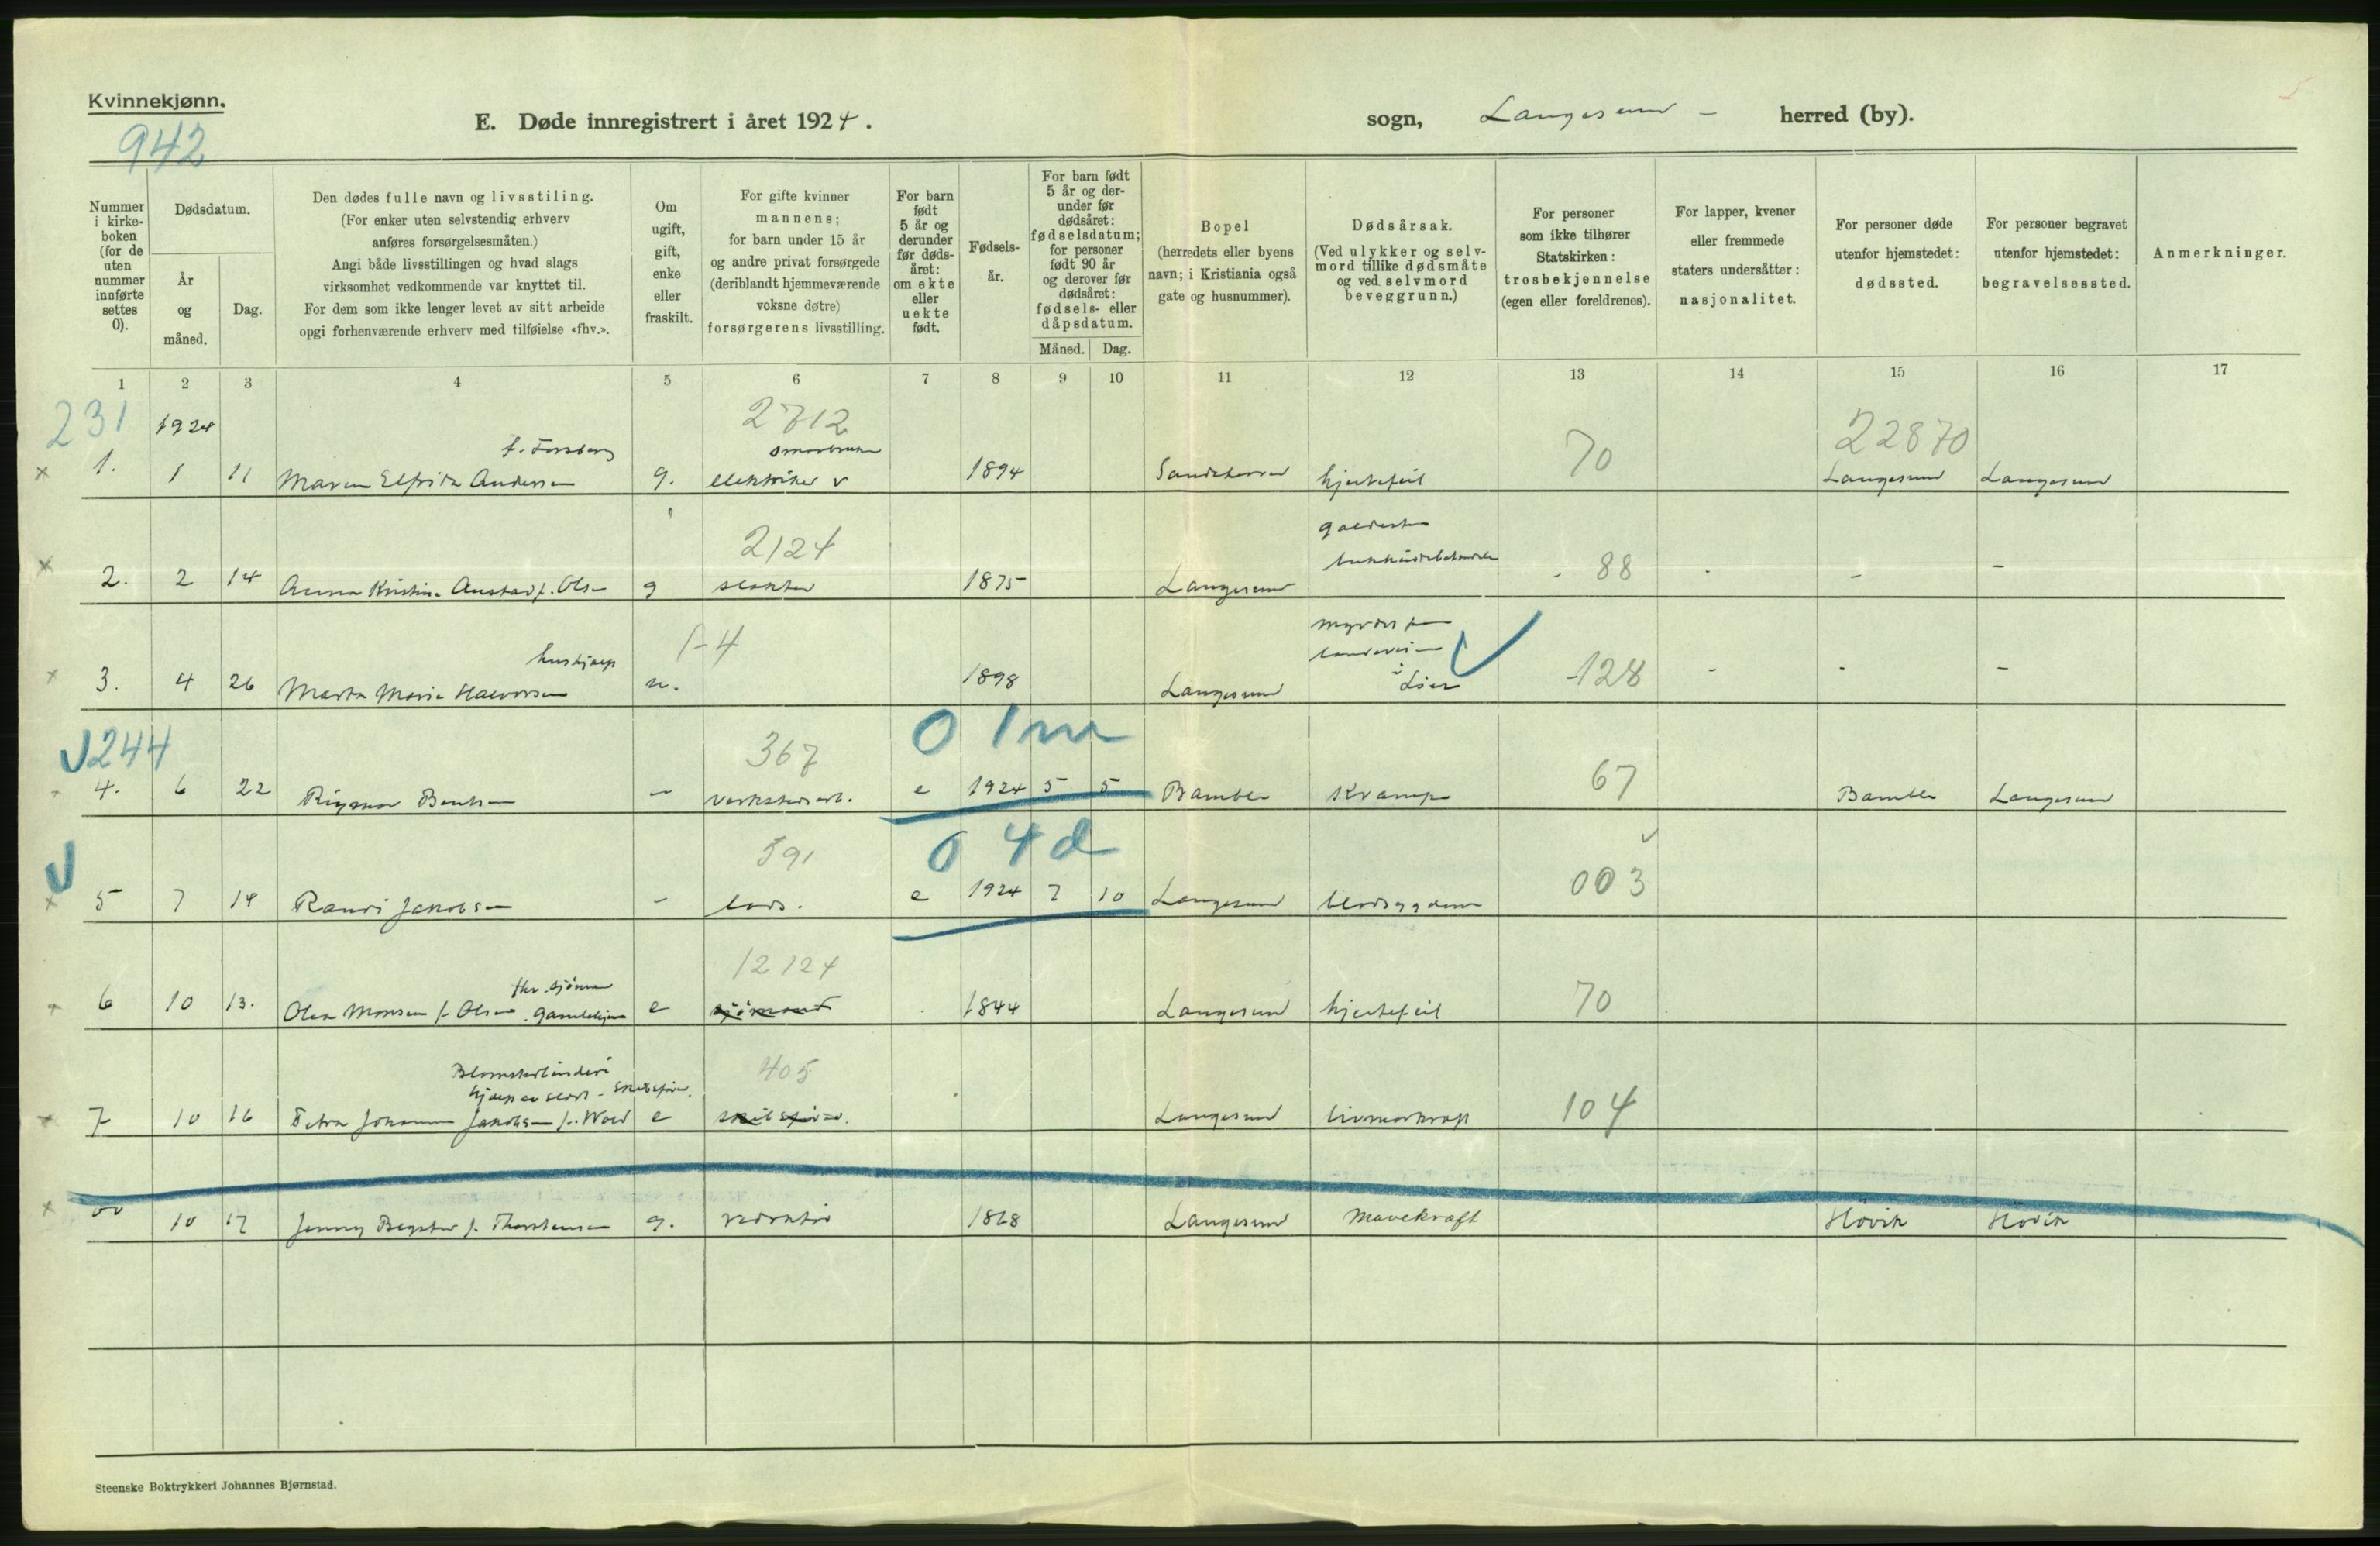 Kvinnekjønn.
942
E. Døde innregistrert i året 1924. sogn, Langesund – herred (by).
Nummer i kirke-boken (for de uten nummer innførte settes 0).
Dødsdatum.
År og måned.
Dag.
Den dødes fulle navn og livsstiling.
(For enker uten selvstendig erhverv
anføres forsørgelsesmåten.)
Angi både livsstillingen og hvad slags
virksomhet vedkommende var knyttet til.
For dem som ikke lenger levet av sitt arbeide
opgi forhenværende erhverv med tilføielse «fhv.».
Om ugift, gift, enke eller fraskilt.
For gifte kvinner
mannens;
for barn under 15 år
og andre privat forsørgede
(deriblandt hjemmeværende
voksne døtre)
forsørgerens livsstilling.
For barn født 5 år og derunder før døds-året: om ekte eller uekte født.
Fødsels-år.
For barn født
5 år og der-
under før
dødsåret:
fødselsdatum;
for personer
født 90 år
og derover før
dødsåret:
fødsels- eller
dåpsdatum.
Måned. Dag.
Bopel
(herredets eller byens
navn; i Kristiania også
gate og husnummer).
Dødsårsak.
(Ved ulykker og selv-
mord tillike dødsmåte
og ved selvmord
beveggrunn.)
For personer
som ikke tilhører
Statskirken:
trosbekjennelse
(egen eller foreldrenes).
For lapper, kvener
eller fremmede
staters undersåtter:
nasjonalitet.
For personer døde
utenfor hjemstedet:
dødssted.
For personer begravet
utenfor hjemstedet:
begravelsessted.
Anmerkninger.
1 2 3 4 5 6 7 8 9 10 11 12 13 14 15 16 17
231 1924 2712 22870
f. Forsberg
1. 1 11 Maren Elfrida Andersen g. elektriker v 1894 Sandeherred hjertefeil 70 Langesund Langesund
2124
2. 2 14 Anna Kristine Austad f. Olsen g slakter 1875 Langesund 88 – –
hushjelp
3. 4 26 Marta Marie Halvorsen u. 1898 Langesund myrdet på landeveien i Lier 128 – – –
244 367 0 1 m
4. 6 22 Rigmor Bentsen – verkstedsarb. e 1924 5 5 Bamble Krampe 67 Bamble Langesund
591 0 4 d
5 7 14 Randi Jakobsen – lods. e 1924 7 10 Langesund blødsygdom 003
12124
fhv. sjömann
6 10 13. Olea Monsen f. Olsen gamlehjem e sjömand 1844 Langesund hjertefeil 70
Blomsterbinderi
405
7 10 16 Petra Johanne Jakobsen f. Wold e skibsfører. Langesund livmorkraft 104
10 17 Jenny Bugster f. Thorstensen g. redaktör 1868 Langesund Mavekræft Hövik Hövik
Steenske Boktrykkeri Johannes Bjørnstad.